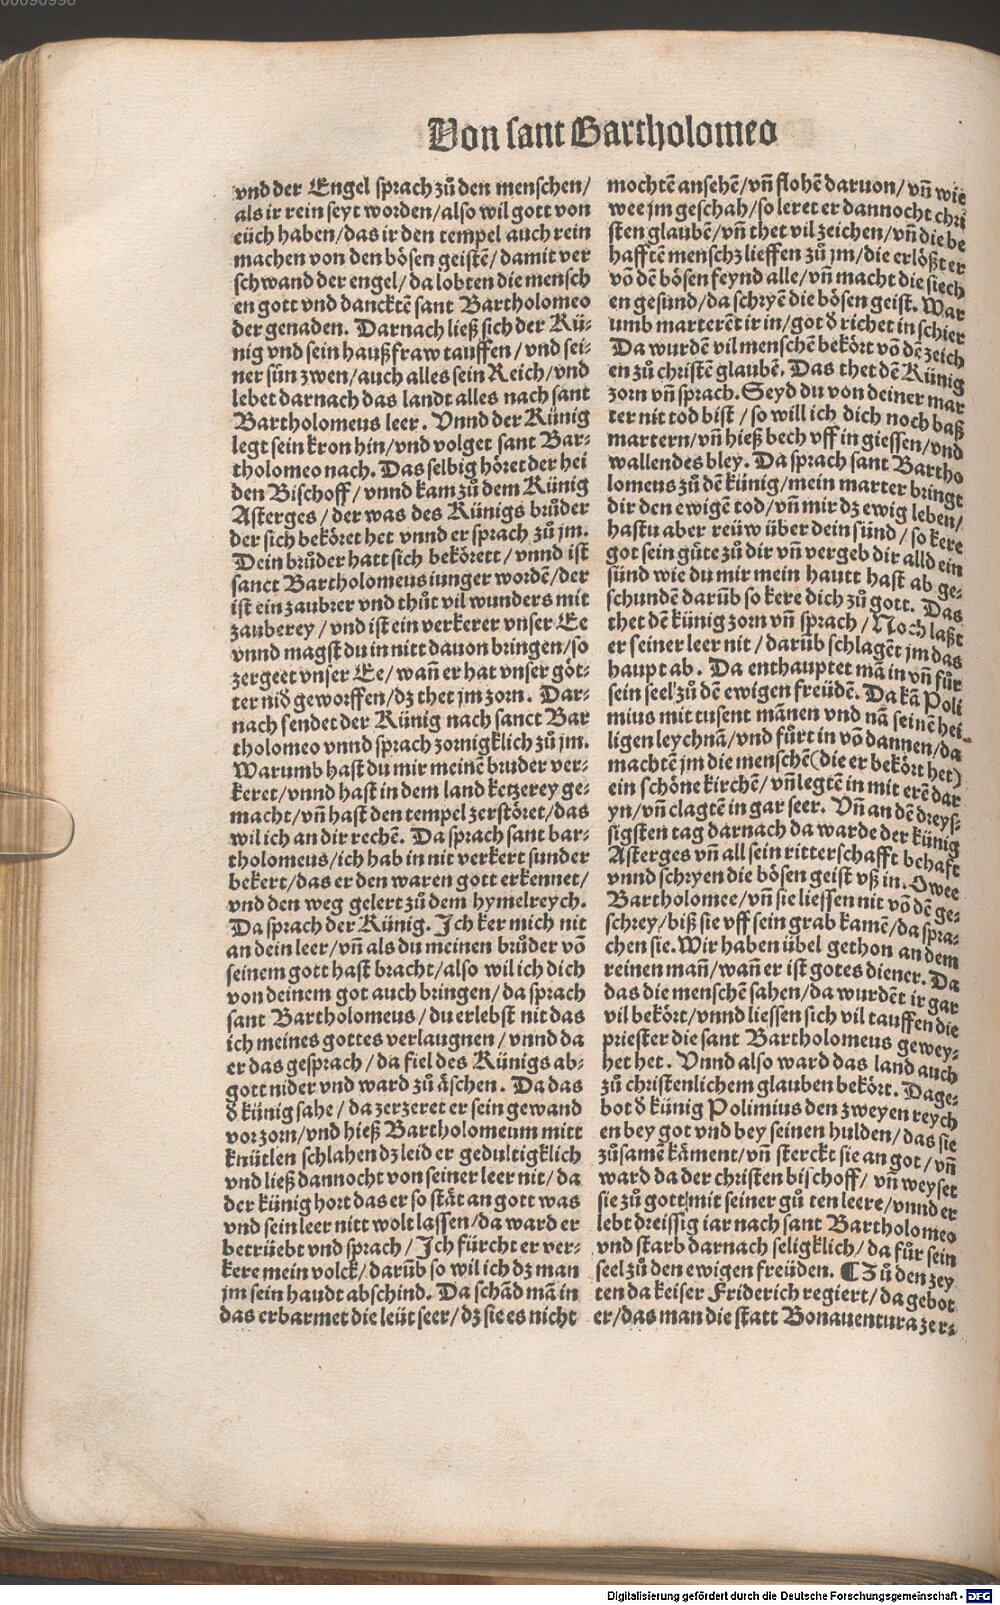 Von sant Bartholomeo
vnd der Engel sprach zuͦ den menschen/
als ir rein seyt worden/also wil gott von
eüch haben/das ir den tempel auch rein
machen von den bösen geistẽ/damit ver
schwand der engel/da lobten die mensch
en gott vnd dancktẽ sant Bartholomeo
der genaden. Darnach ließ sich der Kü⸗
nig vnd sein haußfraw tauffen/vnd sei⸗
ner sün zwen/auch alles sein Reich/vnd
lebet darnach das landt alles nach sant
Bartholomeus leer. Vnnd der Künig
legt sein kron hin/vnd volget sant Bar⸗
tholomeo nach. Das selbig höret der hei
den Bischoff/vnnd kam zuͦ dem Künig
Asterges/der was des Künigs bruͦder
der sich beköret het vnnd er sprach zuͦ jm.
Dein bruͦder hatt sich bekörett/vnnd ist
sanct Bartholomeus iunger wordẽ/der
ist ein zaubrer vnd thuͦt vil wunders mit
zauberey/vnd ist ein verkerer vnser Ee
vnnd magst du in nitt dauon bringen/so
zergeet vnser Ee/wañ er hat vnser göt⸗
ter nid̕ geworffen/dz thet jm zorn. Dar⸗
nach sendet der Künig nach sanct Bar
tholomeo vnnd sprach zornigklich zuͦ jm.
Warumb hast du mir meinẽ bruder ver⸗
keret/vnnd hast in dem land ketzerey ge⸗
macht/vñ hast den tempel zerstöret/das
wil ich an dir rechẽ. Da sprach sant bar⸗
tholomeus/ich hab in nit verkert sunder
bekert/das er den waren gott erkennet/
vnd den weg gelert zuͦ dem hymelreych.
Da sprach der Künig. Ich ker mich nit
an dein leer/vñ als du meinen bruͦder võ
seinem gott hast bracht/also wil ich dich
von deinem got auch bringen/da sprach
sant Bartholomeus/du erlebst nit das
ich meines gottes verlaugnen/vnnd da
er das gesprach/da fiel des Künigs ab⸗
gott nider vnd ward zuͦ äschen. Da das
d̕ künig sahe/da zerzeret er sein gewand
vor zorn/vnd hieß Bartholomeum mitt
knütlen schlahen dz leid er gedultigklich
vnd ließ dannocht von seiner leer nit/da
der künig hort das er so stät an gott was
vnd sein leer nitt wolt lassen/da ward er
betrüebt vnd sprach/Ich fürcht er ver⸗
kere mein volck/darũb so wil ich dz man
jm sein haudt abschind. Da schãd mã in
das erbarmet die leüt seer/dz sie es nicht
mochtẽ ansehẽ/vñ flohẽ daruon/vñ wie
wee jm geschah/so leret er dannocht chri
sten glaubẽ/vñ thet vil zeichen/vñ die be
hafftẽ menschz lieffen zuͦ jm/die erlößt er
võ dẽ bösen feynd alle/vñ macht die siech
en gesund/da schryẽ die bösen geist. War
umb marterẽt ir in/got d̕ richet in schier
Da wurdẽ vil menschẽ bekört võ dẽ zeich
en zuͦ christẽ glaubẽ. Das thet dẽ Künig
zorn vñ sprach. Seyd du von deiner mar
ter nit tod bist/so will ich dich noch baß
martern/vñ hieß bech vff in giessen/vnd
wallendes bley. Da sprach sant Bartho
lomeus zuͦ dẽ künig/mein marter bringt
dir den ewigẽ tod/vñ mir dz ewig leben/
hastu aber reüw über dein sünd/so kere
got sein guͤte zuͦ dir vñ vergeb dir all dein
sünd wie du mir mein hautt hast ab ge⸗
schundẽ darũb so kere dich zuͦ gott. Das
thet dẽ künig zorn vñ sprach/Noch laßt
er seiner leer nit/darũb schlagẽt jm das
haupt ab. Da enthauptet mã in vñ fuͦr
sein seel zuͦ dẽ ewigen freüdẽ. Da kã Poli
mius mit tusent mãnen vnd nã seinẽ hei
ligen leychnã/vnd fuͤrt in võ dannen/da
machtẽ jm die menschẽ (die er bekört het)
ein schöne kirchẽ/vñ legtẽ in mit erẽ dar
yn/vñ clagtẽ in gar seer. Vñ an dẽ dreys⸗
sigsten tag darnach da warde der künig
Asterges vñ all sein ritterschafft behaft
vnnd schryen die bösen geist vß in. O wee
Bartholomee/vñ sie liessen nit võ dẽ ge⸗
schrey/biß sie vff sein grab kamẽ/da spra⸗
chen sie. Wir haben übel gethon an dem
reinen mañ/wañ er ist gotes diener. Da
das die menschẽ sahen/da wurdẽt ir gar
vil bekört/vnnd liessen sich vil tauffen die
priester die sant Bartholomeus gewey⸗
het het. Vnnd also ward das land auch
zuͦ christenlichem glauben bekört. Da ge⸗
bot d̕ künig Polimius den zweyen reych
en bey got vnd bey seinen hulden/das sie
zuͦsamẽ kãment/vñ sterckt sie an got/vñ
ward da der christen bischoff/vñ weyset
sie zuͦ gott mit seiner guͦten leere/vnnd er
lebt dreissig iar nach sant Bartholomeo
vnd starb darnach seligklich/da fuͦr sein
seel zuͦ den ewigen freüden. ¶ Zuͦ den zey
ten da keiser Friderich regiert/da gebot
er/das man die statt Bonauentura zer⸗
Digitalisierung gefördert durch die Deutsche Forschungsgemeinschaft - DFG